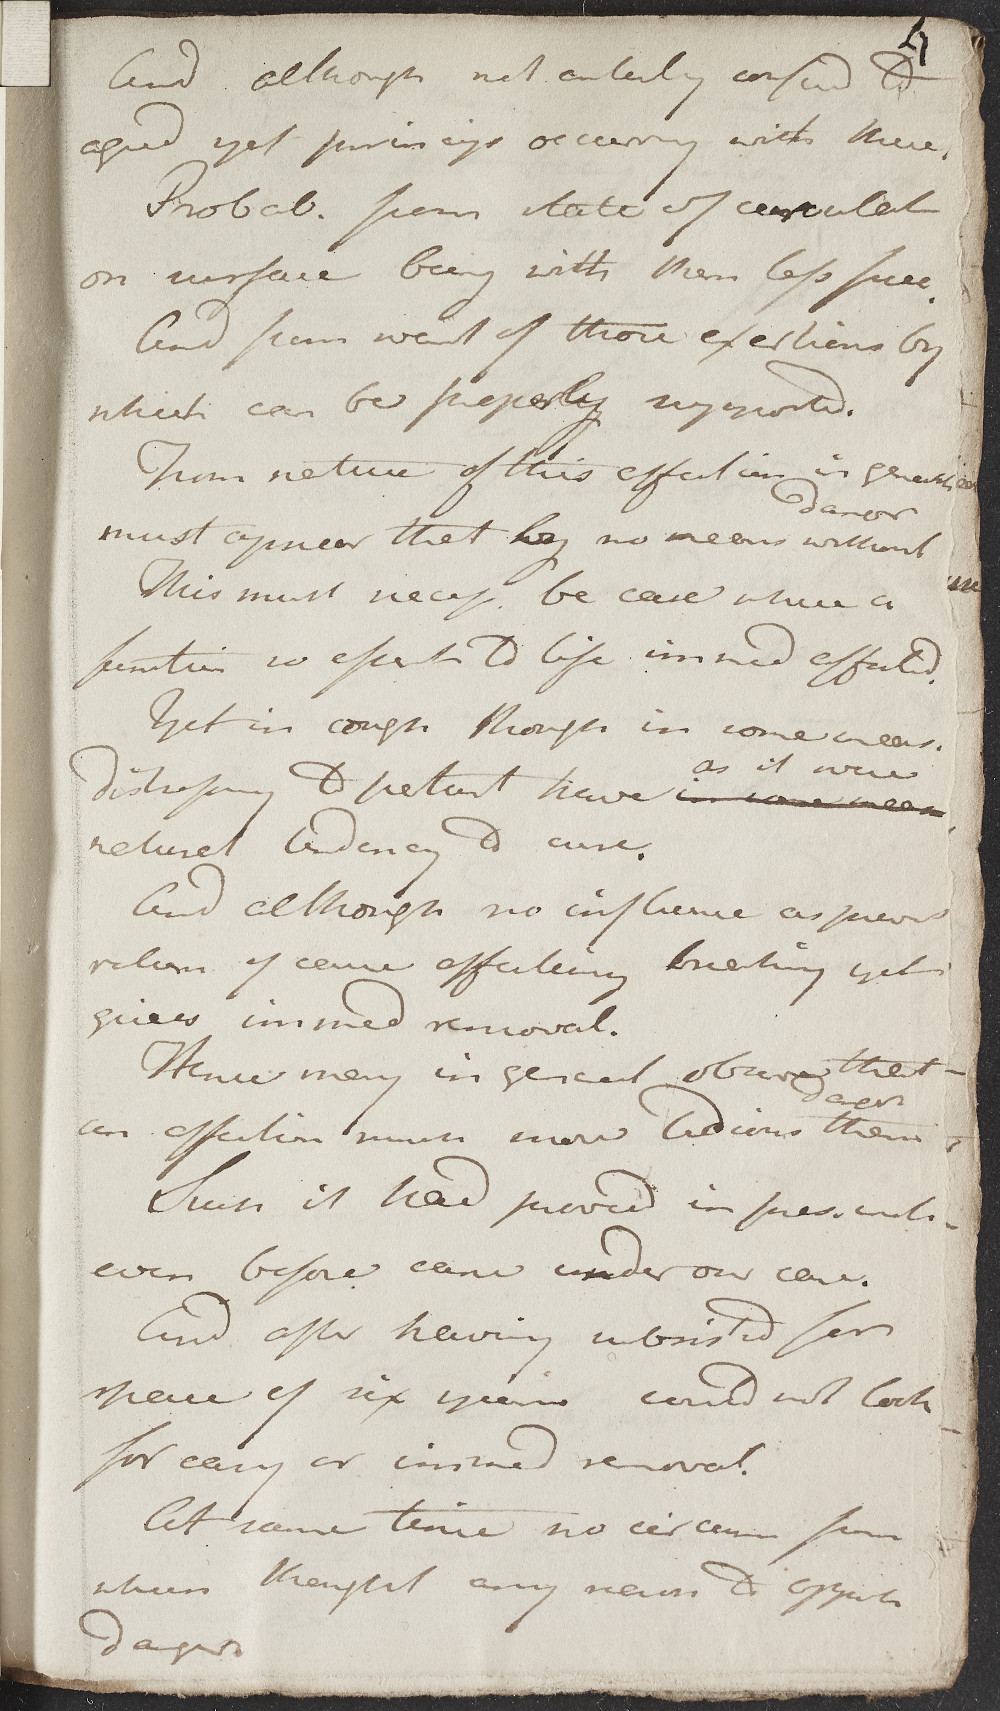 4
And although not entirely confind to
aged yet princips occurring with these.
Probab. from state of circulat
on surface being with them less free.
And from want of those exertions by
which can be properly supported.
From nature of this affection in general
danger
must appear that by no means without
This must necess. be case where a
function so essent to life immed affected.
Yet in cough though in some meas.
as it were
distressing to patient have in some meas.
natural tendency to cure.
And although no influence as prev
return of cause affecting breathing yet
gives immed removal.
Hence many in general observe that
danger
an affection much more tedious than
Such it had proved in pres.
even before came under our care.
And after having subsisted for
space of six years could not look
for easy or immed removal.
At same time no circum from
which thought any reason to appreh
danger